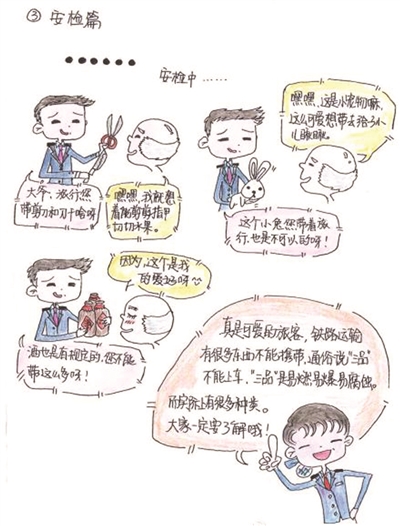 ③ 安检篇
安检中……
大爷，旅行您
带剪刀和刀干啥呀
嘿嘿，我就想
着能剪剪指甲
切切水果。
嘿嘿，这是小宠物嘛，
这么可爱想带去给孙
儿瞧瞧。
这个小兔您带着旅
行，也是不可以的呀！
因为，这个是我
的爱好呀
酒也是有规定的，您不能
带这么多呀！
真是可爱的旅客，铁路运输
有很多东西不能携带，通俗说"三品"
不能上车，"三品"是易燃易爆易腐蚀。
而实际上有很多种类。
大家一定要了解哦！